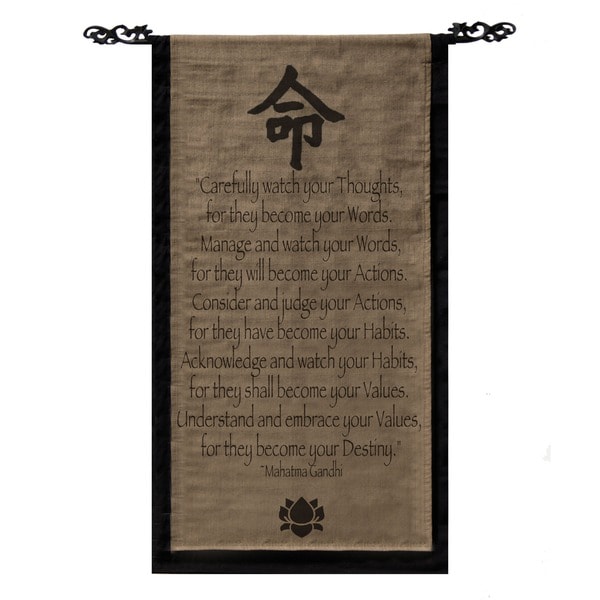 命
"Carefully watch your Thoughts,
for they become your Words.
Manage and watch your Words,
for they will become your Actions.
Consider and judge your Actions,
for they have become your Habits.
Acknowledge and watch your Habits,
for they shall become your Values.
Understand and embrace your Values,
for they become your Destiny."
~Mahatma Gandhi